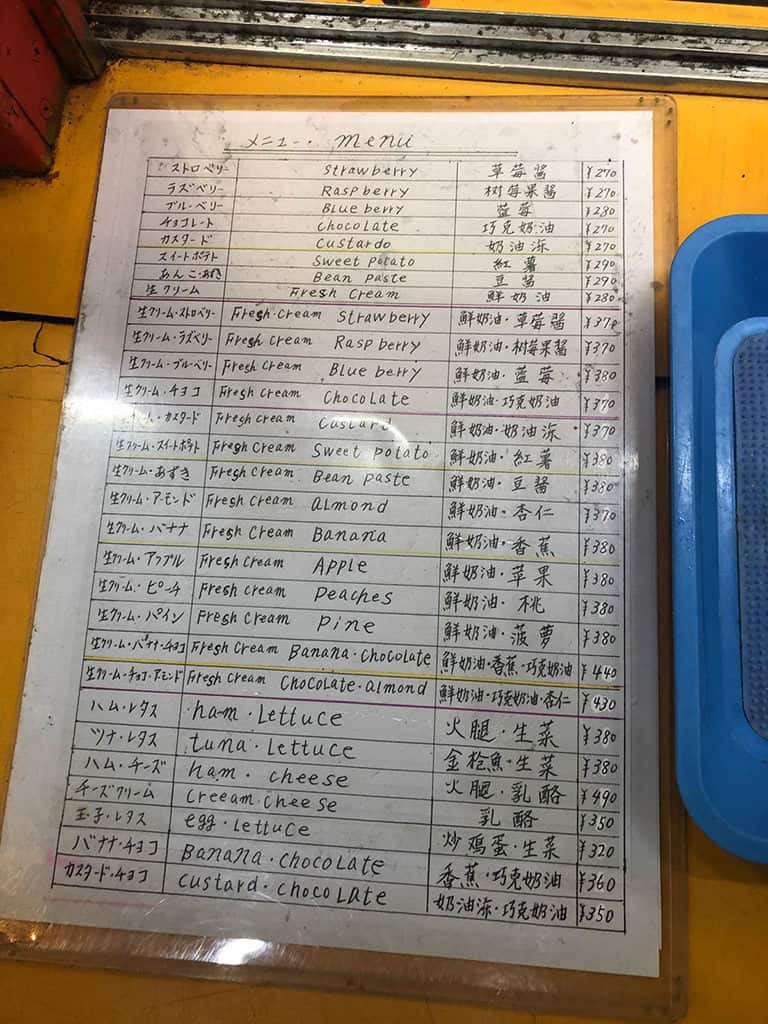 メニュー. menu
ストロベリー strawberry 草莓酱 ¥270
ラズベリー Raspberry 树莓果酱 ¥270
ブルーベリー Blueberry 蓝莓 ¥280
チョコレート chocolate 巧克奶油 ¥270
カスタード custardo 奶油冻 ¥270
スイートポテト sweet potato 紅薯 ¥290
あんこ・あずき Bean paste 豆酱 ¥290
生クリーム Fresh cream 鮮奶油 ¥280
生クリーム・ストロベリー Fresh・cream strawberry 鮮奶油・草莓酱 ¥370
生クリーム・ラズベリー Fresh cream Raspberry 鮮奶油・树莓果酱 ¥370
生クリーム・ブルベリー Fresh cream Blueberry 鮮奶油・蓝莓 ¥380
生クリーム・チョコ Fresh cream chocolate 鮮奶油・巧克奶油 ¥370
カスタード Fresh cream custard 鮮奶油・奶油冻 ¥370
生クリーム・スイートポテト Fresh cream sweet potato 鮮奶油・紅薯 ¥380
生クリーム・あずき Fresh cream Bean paste 鮮奶油・豆酱 ¥380
生クリーム・アーモンド Fresh cream almond 鮮奶油・杏仁 ¥370
生クリーム・バナナ Fresh cream Banana 鮮奶油・香蕉 ¥380
生クリーム・アップル Fresh cream Apple 鮮奶油・苹果 ¥380
生クリーム・ピーチ Fresh cream peaches 鮮奶油・桃 ¥380
生クリーム・パイン Fresh cream pine 鮮奶油・菠萝 ¥380
生クリーム・バナナ・チョコ Fresh cream Banana・chocolate 鮮奶油・香蕉・巧克奶油 ¥440
生クリーム・チョコ・アーモンド Fresh cream chocolate・almond 鮮奶油・巧克奶油・杏仁 ¥430
ハム・レタス ham・Lettuce 火腿・生菜 ¥380
ツナ・レタス tuna・Lettuce 金枪魚・生菜 ¥380
ハム・チーズ ham・cheese 火腿・乳酪 ¥490
チーズクリーム creeam・cheese 乳酪 ¥350
玉子・レタス egg・lettuce 炒鸡蛋・生菜 ¥320
バナナ・チョコ Banana・chocolate 香蕉・巧克奶油 ¥360
カスタード・チョコ custard・chocolate 奶油冻・巧克奶油 ¥350